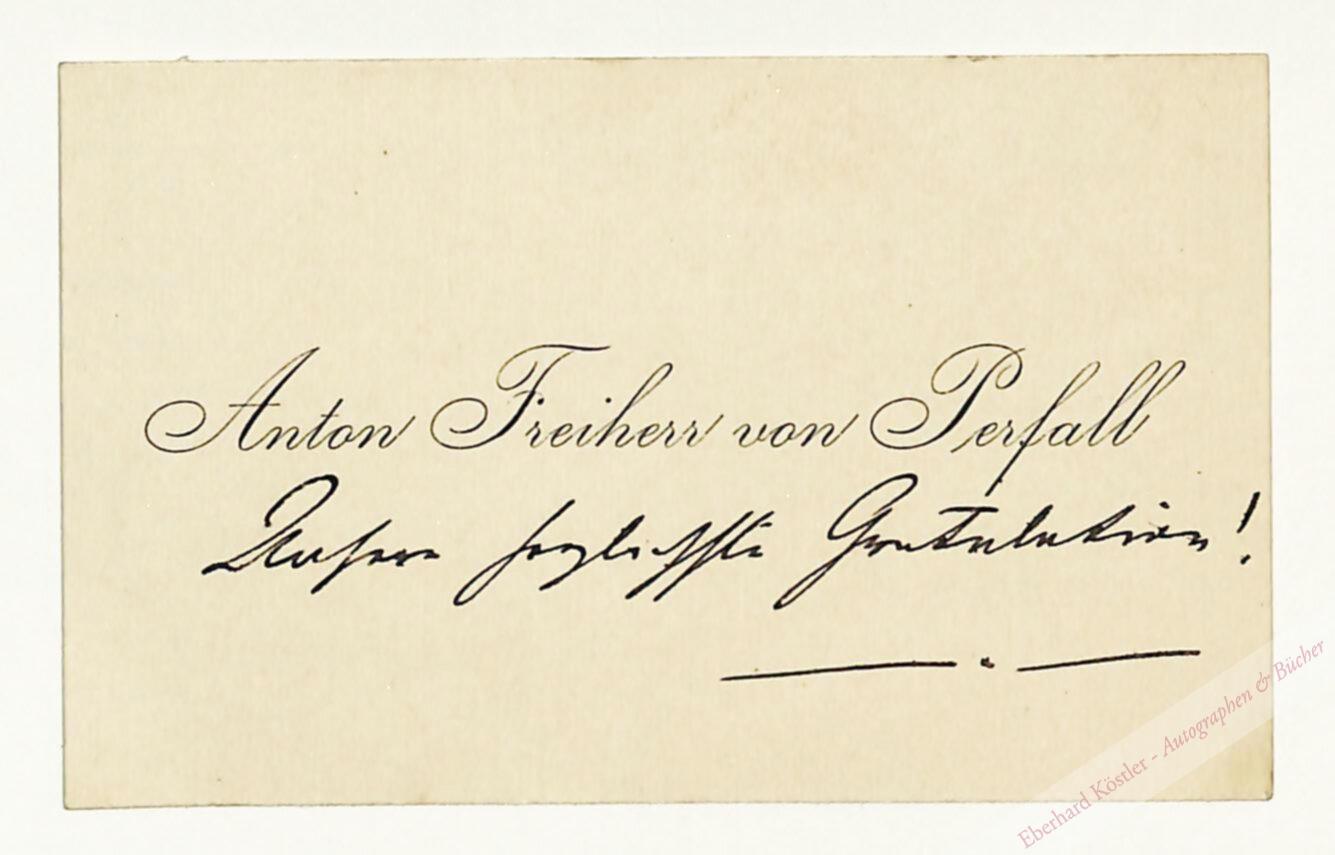 Anton Freiherr von Perfall
Unsere herzlichste Gratulation!
Eberhard Köstler - Autographen & Bücher